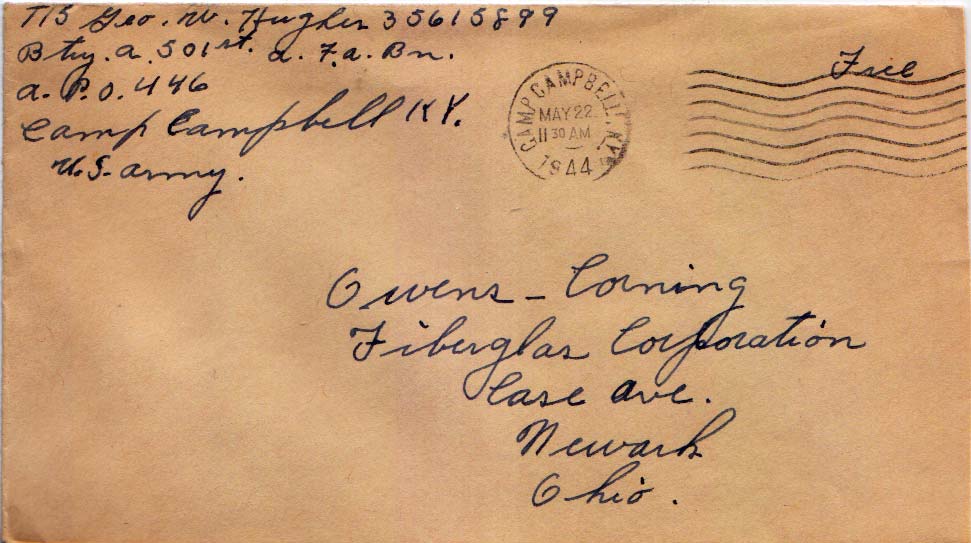 T/5 Geo. W. Hughes 35615899
Btry. A. 501st. A. F. A. Bn.
A. P. O. 446
Camp Campbell KY.
U.S. Army.
CAMP CAMPBELL, KY.
MAY 22
11 30 AM
1944
Free
Owens - Corning
Fiberglas Corporation
Case Ave.
Newark
Ohio.